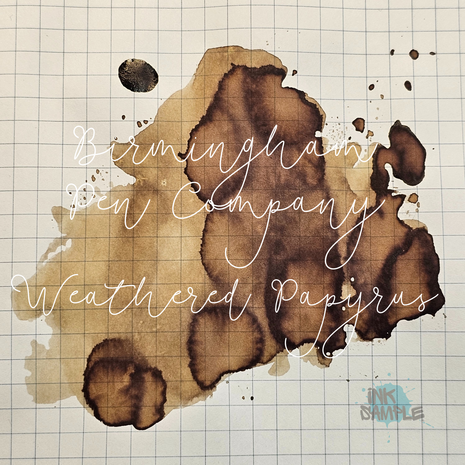 Birmingham
Pen Company
Weathered Papyrus
INK
SAMPLE